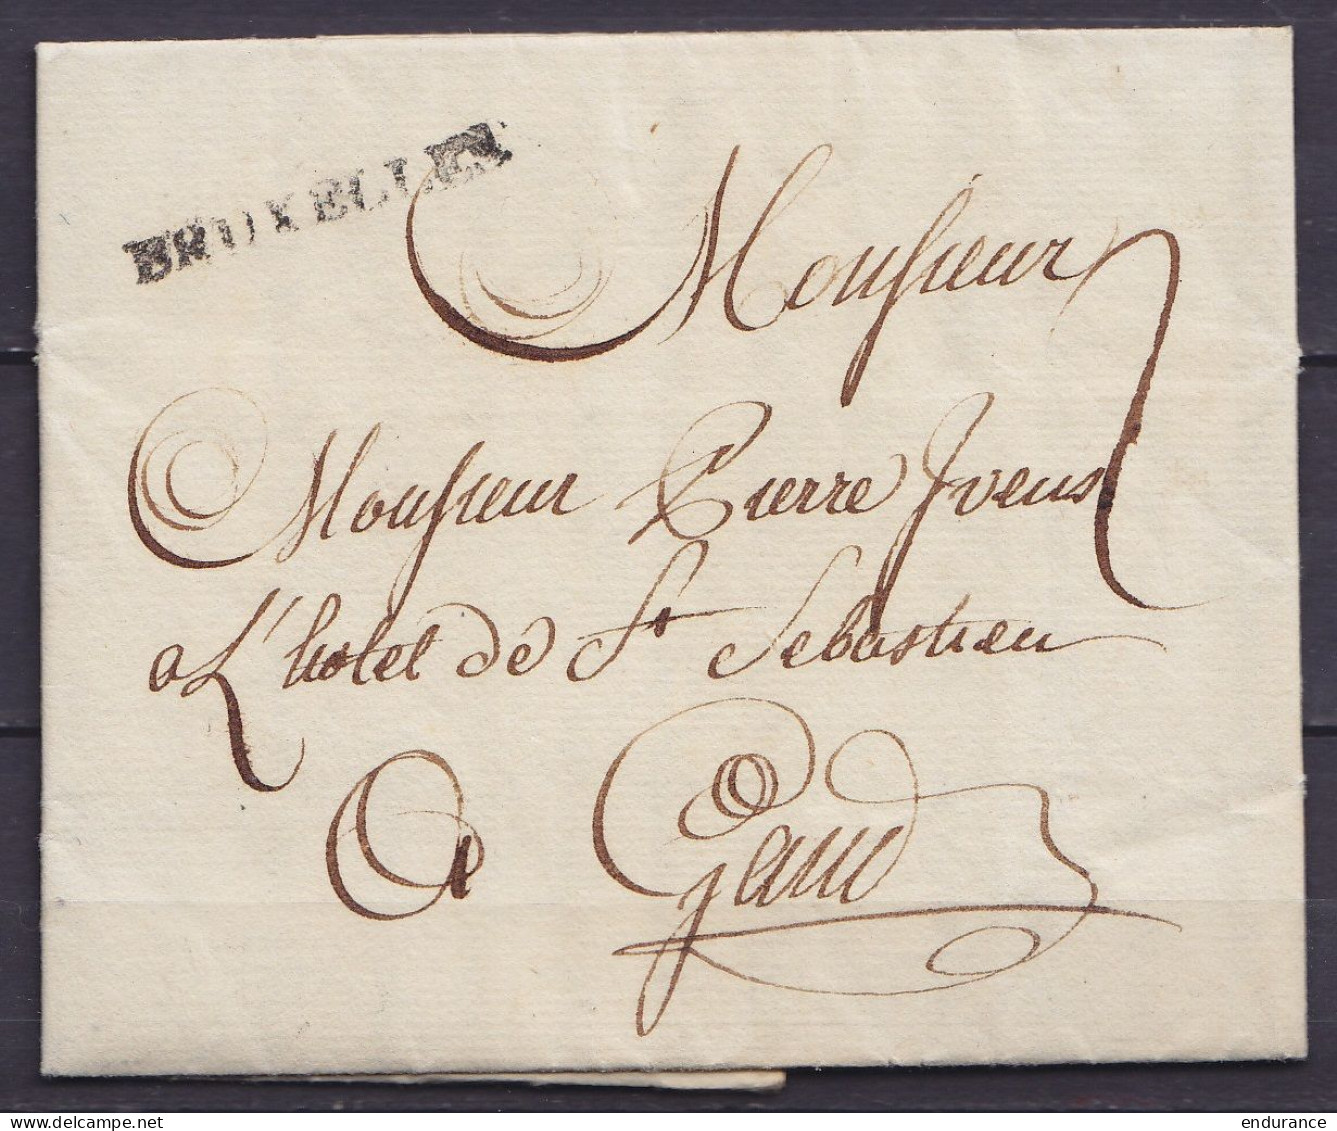 BRUXELLES
Monsieur
Monsieur Pierre Ivens
a L'hotel de St Sebastien
A Gand
delcampe.net
endurance